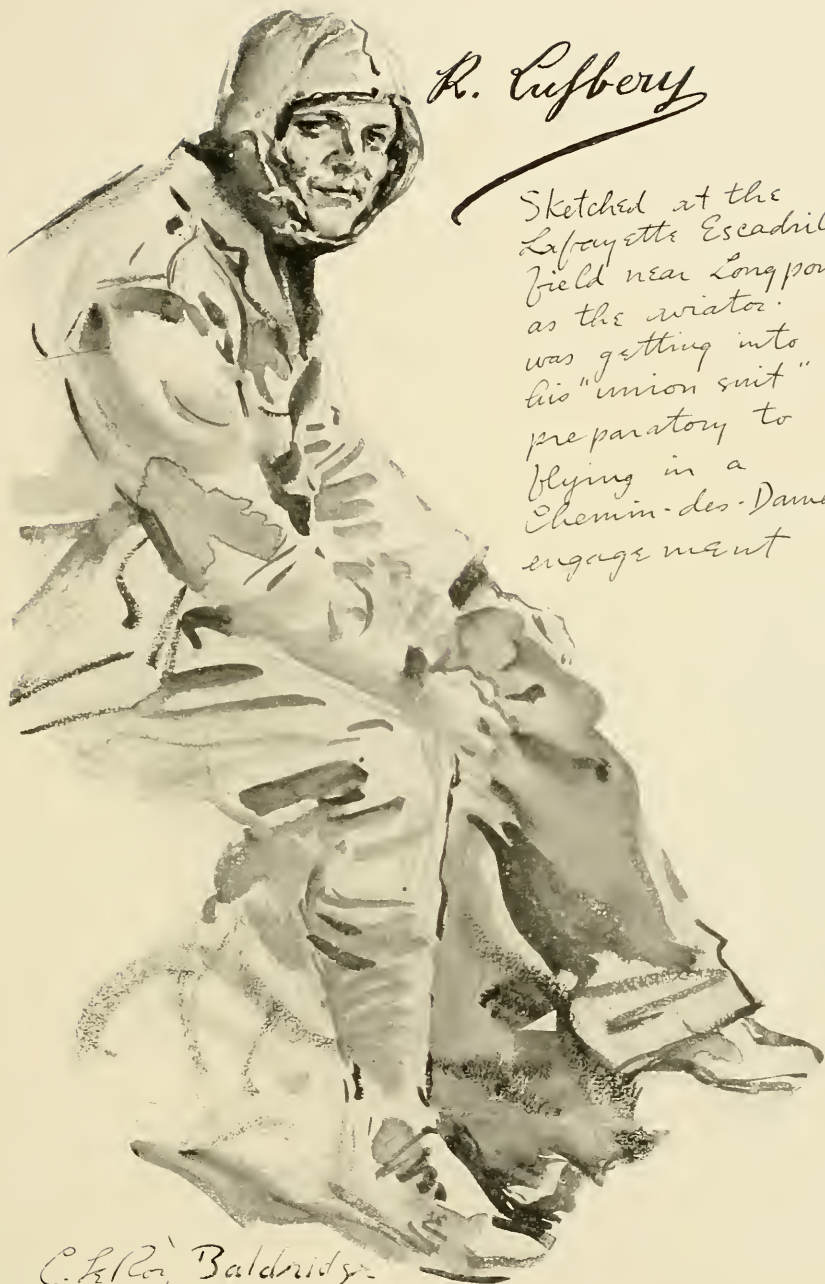 R. Lufbery
Sketched at the
Lafayette Escadril
field near Longpon
as the aviator
was getting into
his "union suit"
preparatory to
flying in a
Chemin-des-Dame
engagement
C. LeRoi Baldridge